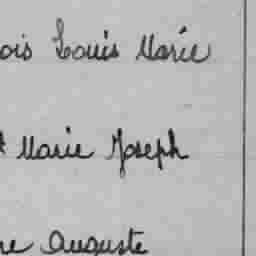 ois Louis Marie
t Marie Joseph
ne Auguste